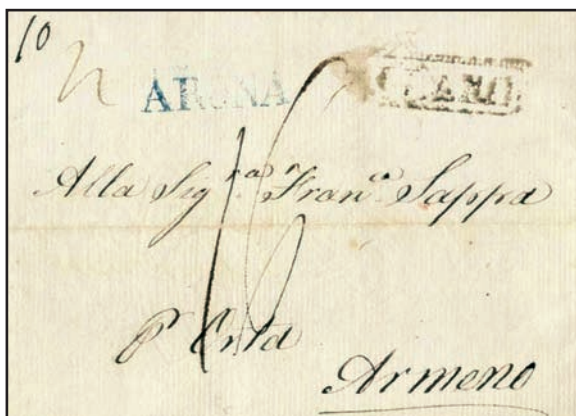 10
ARONA
16
Alla Sig.ra Fran.ca Sappa
P Orta
Armeno